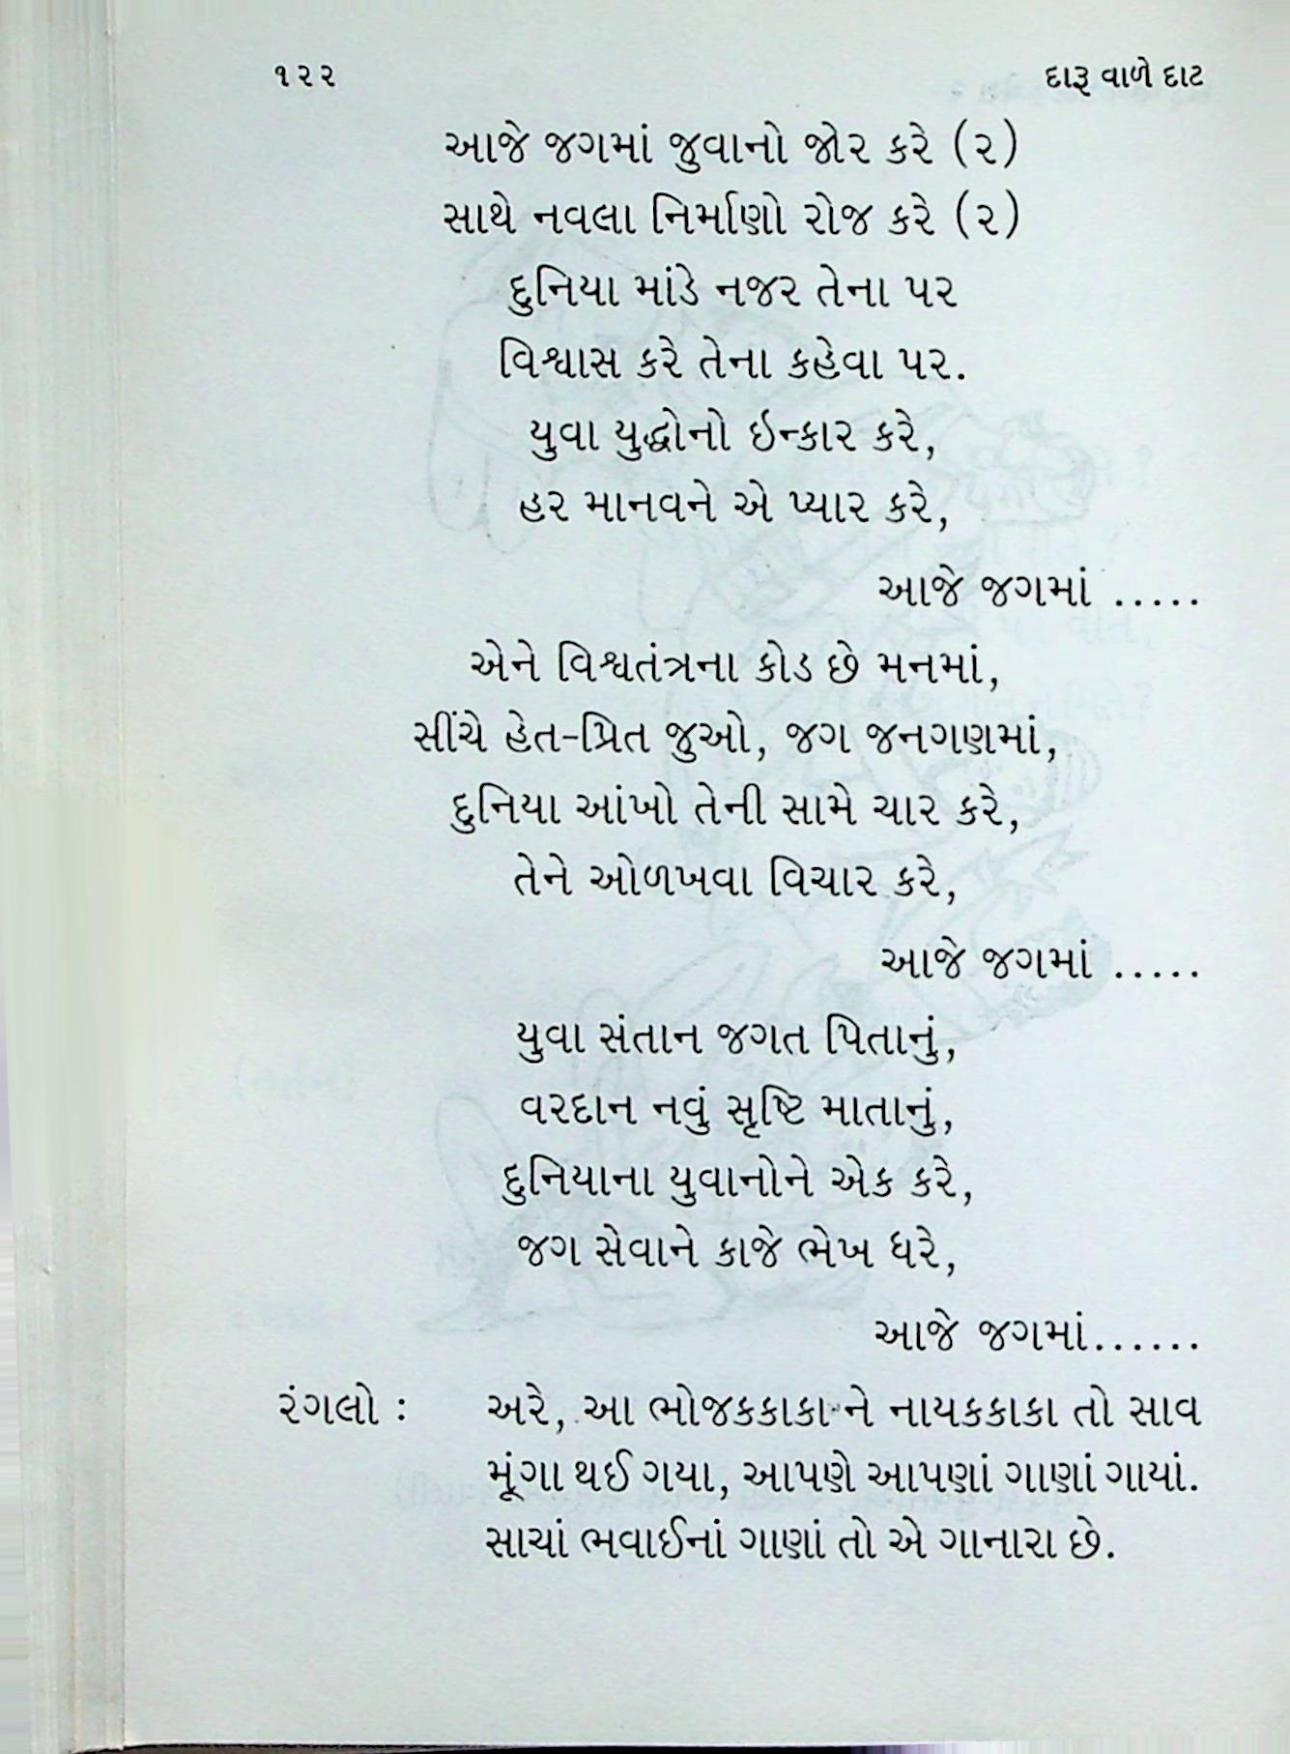 ૧૨૨ દારૂ વાળે દાટ
આજે જગમાં જુવાનો જોર કરે (૨)
સાથે નવલા નિર્માણો રોજ કરે (૨)
દુનિયા માંડે નજર તેના પર
વિશ્વાસ કરે તેના કહેવા પર.
યુવા યુદ્ધોનો ઇન્કાર કરે,
હર માનવને એ પ્યાર કરે,
આજે જગમાં .....
એને વિશ્વતંત્રના કોડ છે મનમાં,
સીંચે હેત-પ્રિત જુઓ, જગ જનગણમાં,
દુનિયા આંખો તેની સામે ચાર કરે,
તેને ઓળખવા વિચાર કરે,
આજે જગમાં .....
યુવા સંતાન જગત પિતાનું,
વરદાન નવું સૃષ્ટિ માતાનું,
દુનિયાના યુવાનોને એક કરે,
જગ સેવાને કાજે ભેખ ધરે,
આજે જગમાં......
રંગલો : અરે, આ ભોજકકાકા ને નાયકકાકા તો સાવ
મૂંગા થઈ ગયા, આપણે આપણાં ગાણાં ગાયાં.
સાચાં ભવાઈનાં ગાણાં તો એ ગાનારા છે.